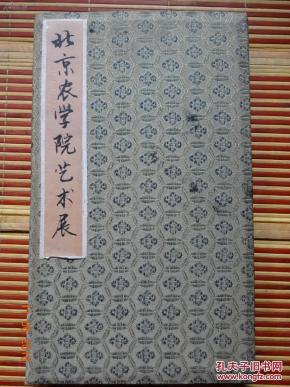 北京农学院艺术展
孔夫子旧书网